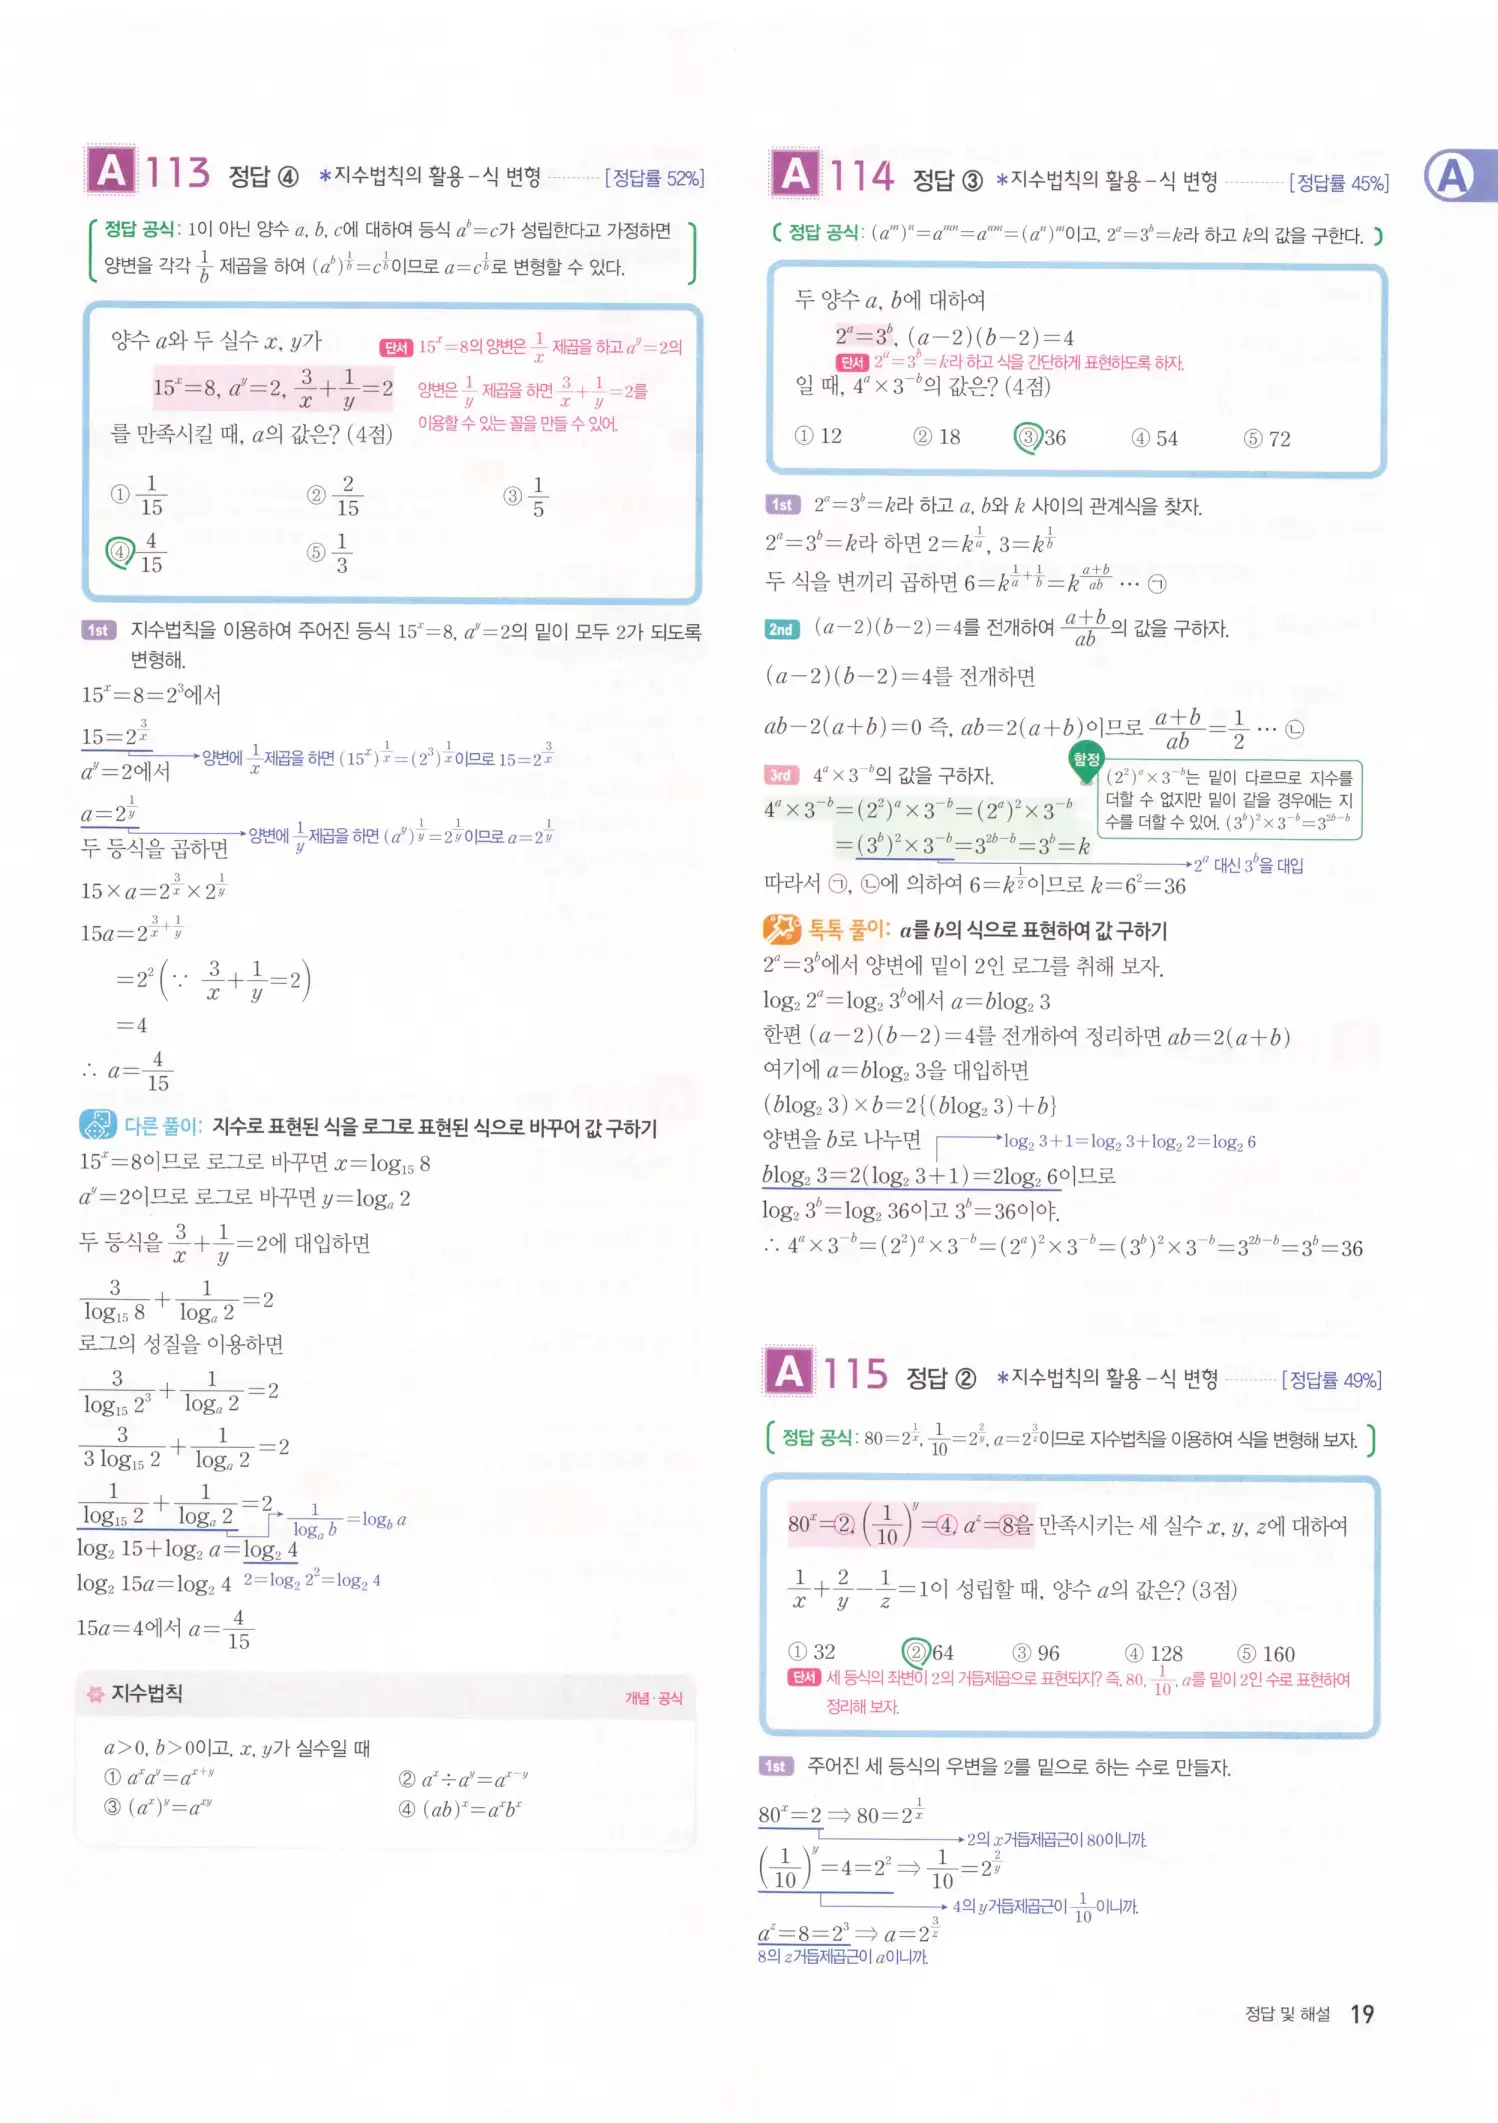 A 113 정답 ④ *지수법칙의 활용-식 변형 [정답률 52%]
정답 공식: 1이 아닌 양수 a, b, c에 대하여 등식 a^b=c가 성립한다고 가정하면
양변을 각각 1/b 제곱을 하여 (a^b)^(1/b)=c^(1/b)이므로 a=c^(1/b)로 변형할 수 있다.
양수 a와 두 실수 x, y가
15^x=8, a^y=2, 3/x+1/y=2
를 만족시킬 때, a의 값은? (4점)
단서 15^x=8의 양변은 1/x 제곱을 하고 a^y=2의
양변은 1/y 제곱을 하면 3/x+1/y=2를
이용할 수 있는 꼴을 만들 수 있어.
① 1/15 ② 2/15 ③ 1/5
④ 4/15 ⑤ 1/3
1st 지수법칙을 이용하여 주어진 등식 15^x=8, a^y=2의 밑이 모두 2가 되도록
변형해.
15^x=8=2^3에서
15=2^(3/x)
양변에 1/x제곱을 하면 (15^x)^(1/x)=(2^3)^(1/x)이므로 15=2^(3/x)
a^y=2에서
a=2^(1/y)
양변에 1/y제곱을 하면 (a^y)^(1/y)=2^(1/y)이므로 a=2^(1/y)
두 등식을 곱하면
15×a=2^(3/x)×2^(1/y)
15a=2^(3/x+1/y)
=2^2(∵ 3/x+1/y=2)
=4
∴ a=4/15
다른 풀이: 지수로 표현된 식을 로그로 표현된 식으로 바꾸어 값 구하기
15^x=8이므로 로그로 바꾸면 x=log₁₅ 8
a^y=2이므로 로그로 바꾸면 y=logₐ 2
두 등식을 3/x+1/y=2에 대입하면
3/(log₁₅ 8)+1/(logₐ 2)=2
로그의 성질을 이용하면
3/(log₁₅ 2^3)+1/(logₐ 2)=2
3/(3 log₁₅ 2)+1/(logₐ 2)=2
1/(log₁₅ 2)+1/(logₐ 2)=2
1/(logₐ b)=log_b a
log₂ 15+log₂ a=log₂ 4
log₂ 15a=log₂ 4 2=log₂ 2^2=log₂ 4
15a=4에서 a=4/15
지수법칙 개념·공식
a>0, b>0이고, x, y가 실수일 때
① a^x a^y=a^(x+y) ② a^x÷a^y=a^(x-y)
③ (a^x)^y=a^(xy) ④ (ab)^x=a^x b^x
A 114 정답 ③ *지수법칙의 활용-식 변형 [정답률 45%]
A
정답 공식: (a^m)^n=a^(mn)=a^(nm)=(a^n)^m이고, 2^a=3^b=k라 하고 k의 값을 구한다.
두 양수 a, b에 대하여
2^a=3^b, (a-2)(b-2)=4
단서 2^a=3^b=k라 하고 식을 간단하게 표현하도록 하자.
일 때, 4^a×3^(-b)의 값은? (4점)
① 12 ② 18 ③ 36 ④ 54 ⑤ 72
1st 2^a=3^b=k라 하고 a, b와 k 사이의 관계식을 찾자.
2^a=3^b=k라 하면 2=k^(1/a), 3=k^(1/b)
두 식을 변끼리 곱하면 6=k^(1/a+1/b)=k^((a+b)/ab) … ㉠
2nd (a-2)(b-2)=4를 전개하여 (a+b)/ab의 값을 구하자.
(a-2)(b-2)=4를 전개하면
ab-2(a+b)=0 즉, ab=2(a+b)이므로 (a+b)/ab=1/2 … ㉡
3rd 4^a×3^(-b)의 값을 구하자.
4^a×3^(-b)=(2^2)^a×3^(-b)=(2^a)^2×3^(-b)
=(3^b)^2×3^(-b)=3^(2b-b)=3^b=k
함정
(2^2)^a×3^(-b)는 밑이 다르므로 지수를
더할 수 없지만 밑이 같을 경우에는 지
수를 더할 수 있어. (3^b)^2×3^(-b)=3^(2b-b)
2^a 대신 3^b을 대입
따라서 ㉠, ㉡에 의하여 6=k^(1/2)이므로 k=6^2=36
톡톡 풀이: a를 b의 식으로 표현하여 값 구하기
2^a=3^b에서 양변에 밑이 2인 로그를 취해 보자.
log₂ 2^a=log₂ 3^b에서 a=blog₂ 3
한편 (a-2)(b-2)=4를 전개하여 정리하면 ab=2(a+b)
여기에 a=blog₂ 3을 대입하면
(blog₂ 3)×b=2{(blog₂ 3)+b}
양변을 b로 나누면 log₂ 3+1=log₂ 3+log₂ 2=log₂ 6
blog₂ 3=2(log₂ 3+1)=2log₂ 6이므로
log₂ 3^b=log₂ 36이고 3^b=36이야.
∴ 4^a×3^(-b)=(2^2)^a×3^(-b)=(2^a)^2×3^(-b)=(3^b)^2×3^(-b)=3^(2b-b)=3^b=36
A 115 정답 ② *지수법칙의 활용-식 변형 [정답률 49%]
정답 공식: 80=2^(1/x), 1/10=2^(2/y), a=2^(3/z)이므로 지수법칙을 이용하여 식을 변형해 보자.
80^x=2, (1/10)^y=4, a^z=8을 만족시키는 세 실수 x, y, z에 대하여
1/x+2/y-1/z=1이 성립할 때, 양수 a의 값은? (3점)
① 32 ② 64 ③ 96 ④ 128 ⑤ 160
단서 세 등식의 좌변이 2의 거듭제곱으로 표현되지? 즉, 80, 1/10, a를 밑이 2인 수로 표현하여
정리해 보자.
1st 주어진 세 등식의 우변을 2를 밑으로 하는 수로 만들자.
80^x=2 ⇒ 80=2^(1/x)
2의 x거듭제곱근이 80이니까.
(1/10)^y=4=2^2 ⇒ 1/10=2^(2/y)
4의 y거듭제곱근이 1/10이니까.
a^z=8=2^3 ⇒ a=2^(3/z)
8의 z거듭제곱근이 a이니까.
정답 및 해설 19